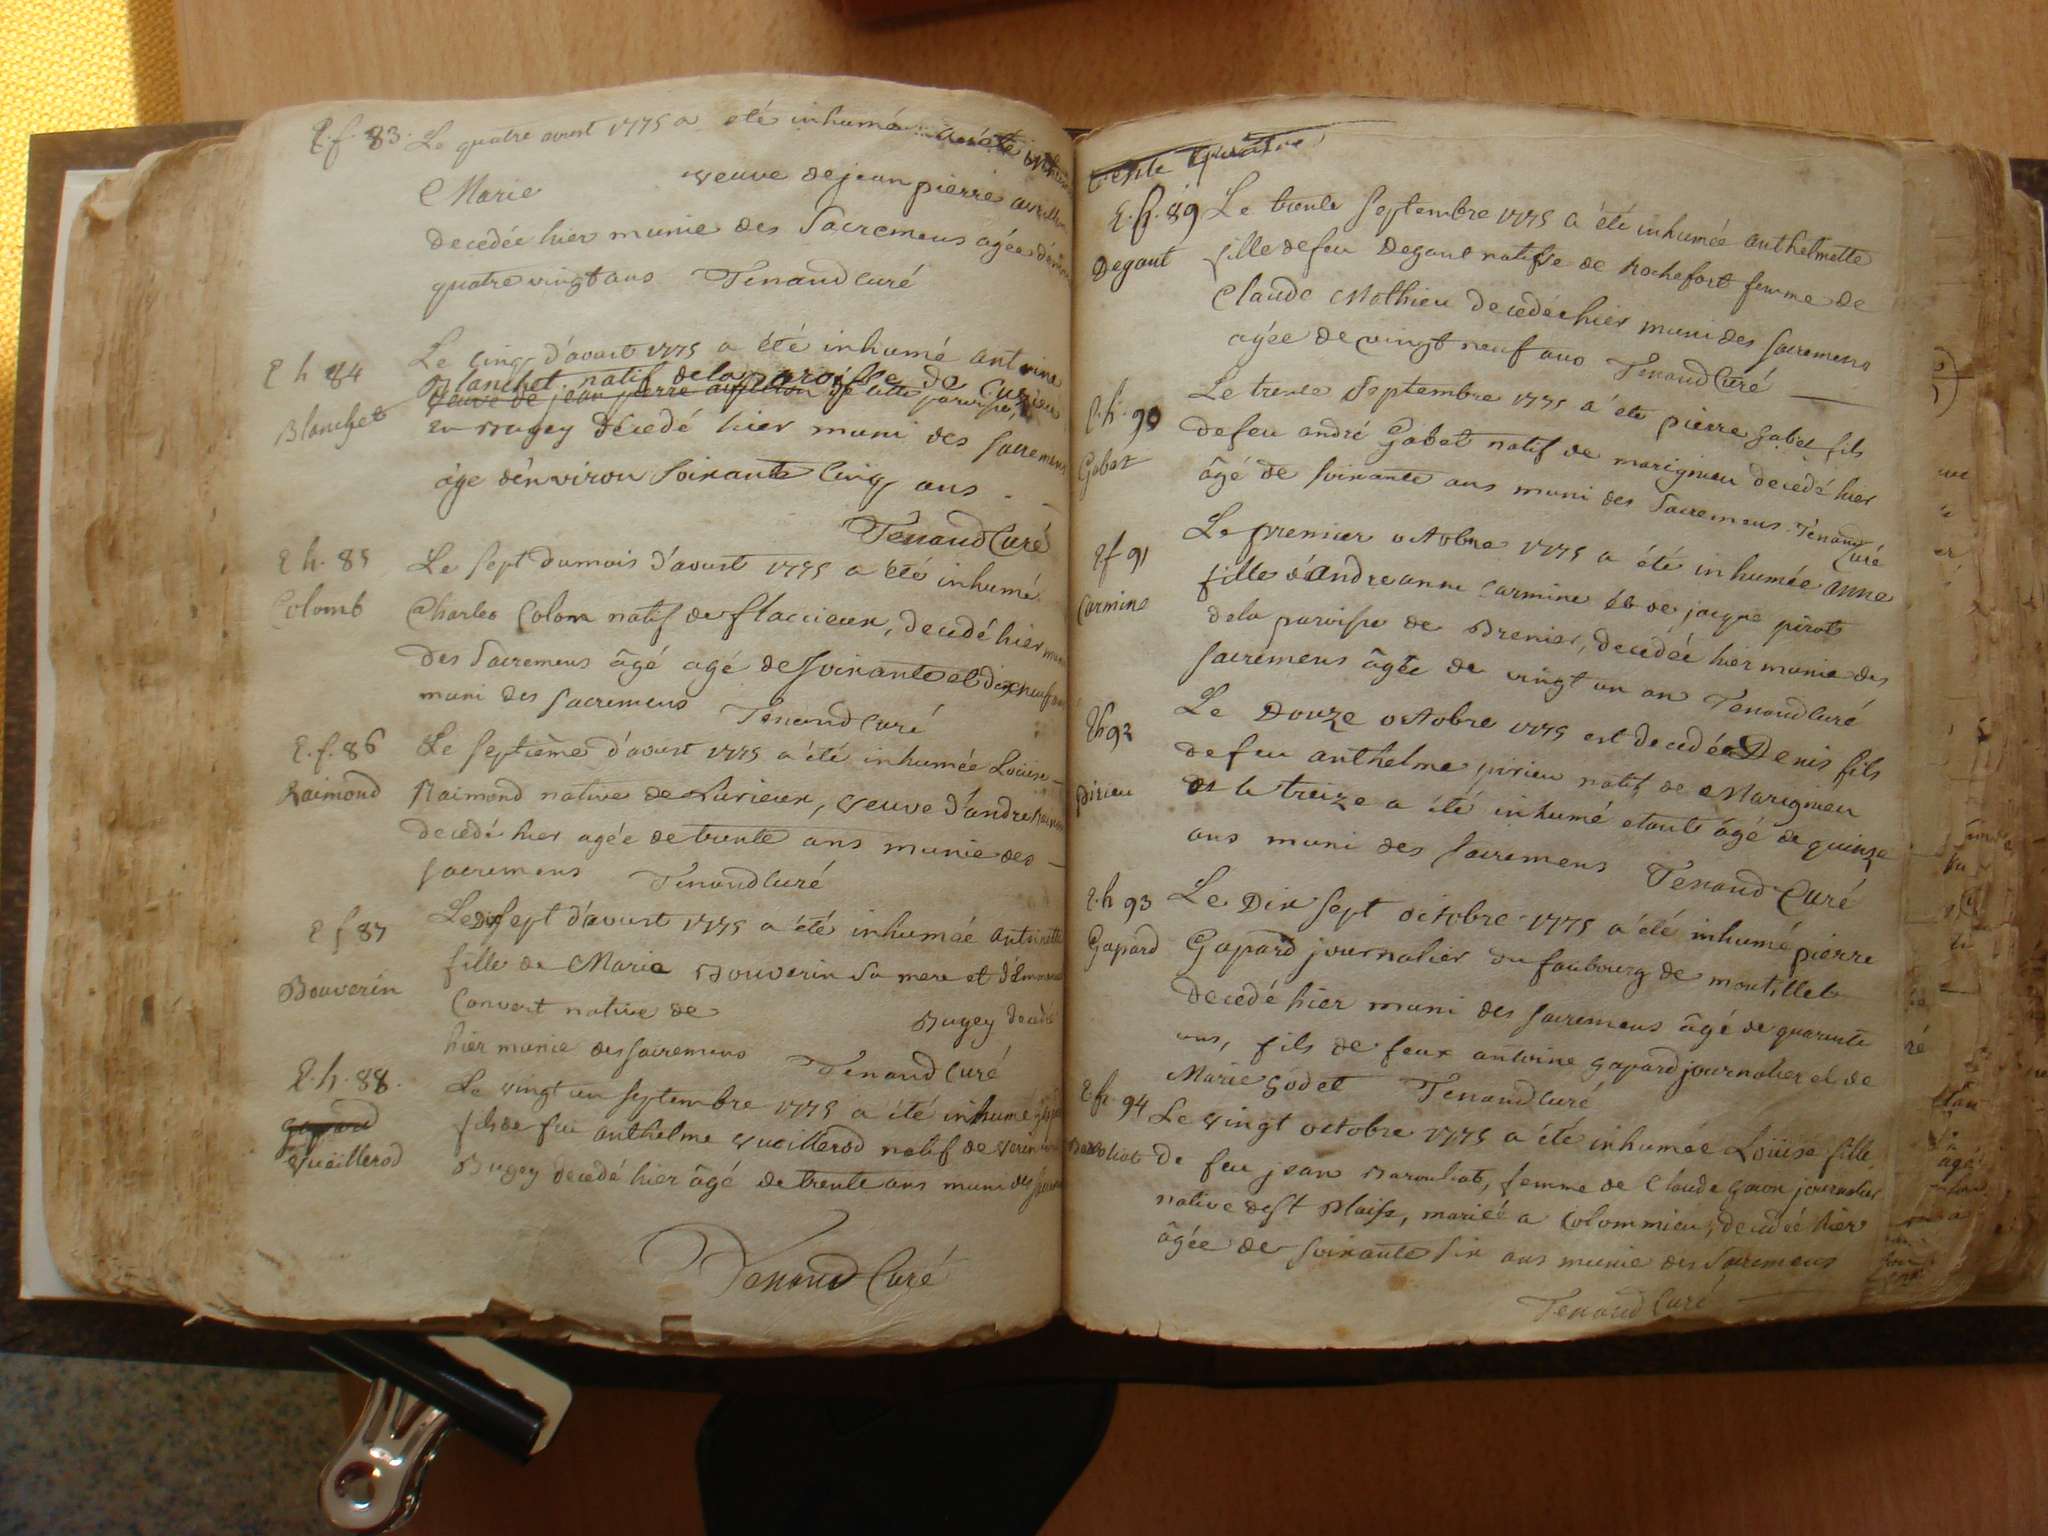 E.f. 83. Le quatre aoust 1775 a été inhumé
Marie veuve de jean pierre
decedée hier munie des Sacremens agée d'environ
quatre vingt ans Tenand Curé
E h 84 Le cinq d'aoust 1775 a été inhumé antoine
Blanchet natif de la paroisse de
veuve de jean pierre de cette paroisse
Blanchet
en Bugey décedé hier muni des Sacremens
âge d'environ soixante cinq ans
Tenand Curé
E h. 85 Le sept du mois d'aoust 1775 a été inhumé
Colomb Charles Colom natif de flaccieux, decedé hier muni
des Sacremens âgé agé de soixante et dix neuf ans
muni des sacremens Tenand Curé
E.f. 86 Le septième d'aoust 1775 a été inhumée Louise
Raimond Raimond native de Lurieux, veuve d'andre
decedé hier agée de trente ans munie des
sacremens Tenand Curé
E f 87 Le Dix sept d'aoust 1775 a été inhumée antoinette
fille de Marie Bouverin sa mere et
Bouverin Convert native de Bugey decedé
hier munie des sacremens Tenand Curé
E.h. 88. Le vingt un septembre 1775 a été inhumé
gapard
fils de feu anthelme vueillerod natif de
vueillerod Bugey decedé hier âgé de trente ans muni des
Tenand Curé
trente quatre
E.f. 89 Le trente septembre 1775 a été inhumée anthelmette
Degout fille de feu Degout native de Rochefort femme de
Claude Mathieu decedée hier muni des sacremens
agée de vingt neuf ans Tenand Curé
E.h. 90 Le trente Septembre 1775 a été pierre gabet fils
de feu andré Gabet natif de marignieu decedé hier
Gabet âgé de soixante ans muni des Sacremens. Tenand
Curé
E f 91 Le premier octobre 1775 a été inhumée anne
fille d'andre anne Carmine et de jacque pirot
Carmine de la paroisse de Brenier, decedée hier munie des
sacremens âgée de vingt un an Tenand Curé
E h 92 Le Douze octobre 1775 est decedée Denis fils
de feu anthelme pirieu natif de Marignieu
pirieu et le treize a été inhumé etant âgé de quinze
ans muni des sacremens Tenand Curé
E.h 93 Le Dix sept octobre 1775 a été inhumé pierre
Gapard Gapard journalier du faubourg de montillet
decedé hier muni des sacremens âgé de quarante
ans, fils de feux antoine gapard journalier et de
Marie Godet Tenand Curé
E.f. 94 Le vingt octobre 1775 a été inhumée Loüise fille
Barouliat de feu jean Barouliat, femme de Claude journalier
native de st Blaise, mariée a Colommieu, decedée hier
âgée de soixante six ans munie des Sacremens
Tenand Curé